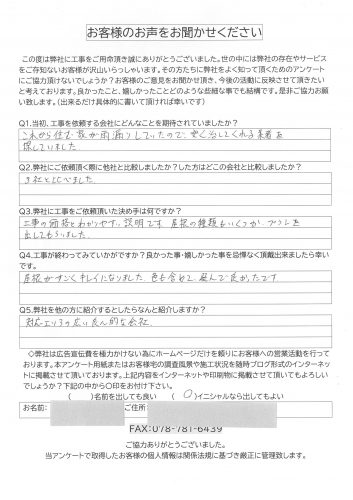 お客様のお声をお聞かせください
この度は弊社に工事をご用命頂き誠にありがとうございました。世の中には弊社の存在やサービス
をご存知ないお客様が沢山いらっしゃいます。その方たちに弊社をよく知って頂くためのアンケート
にご協力頂けないでしょうか？お客様のご意見をお聞かせ頂き、今後の活動に反映させて頂きたい
と考えております。良かったこと、嬉しかったことどのような些細な事でも結構です。是非ご協力お願
い致します。（出来るだけ具体的に書いて頂ければ幸いです）
Q1.当初、工事を依頼する会社にどんなことを期待されていましたか？
これから住む家が雨漏りしていたので、安く治してくれる業者を
探していました
Q2.弊社にご依頼頂く際に他社と比較しましたか？した方はどこの会社と比較しましたか？
3社と比べました
Q3.弊社に工事をご依頼頂いた決め手は何ですか？
工事の価格とわかりやすい説明です。屋根の種類もいくつか、プランを
出してもらいました。
Q4.工事が終わってみていかがですか？良かった事・嬉しかった事を忌憚なく頂戴出来ましたら幸い
です。
屋根がすごくキレイになりました 色も含めて、選んで良かったです
Q5.弊社を他の方に紹介するとしたらなんと紹介しますか？
対応エリアの広い良心的な会社
◇弊社は広告宣伝費を極力かけない為にホームページだけを頼りにお客様への営業活動を行って
おります。本アンケート用紙またはお客様宅の調査風景や施工状況を随時ブログ形式のインターネッ
トに掲載させて頂いております。上記内容をインターネットや印刷物に掲載させて頂いてもよろしい
でしょうか？下記の中から〇印をお付け下さい。
（　　）名前を出しても良い　（〇）イニシャルなら出してもよい
お名前:　　ご住所
FAX:078-781-6439
ご協力ありがとうございました。
当アンケートで取得したお客様の個人情報は関係法規に基づき厳正に管理致します。